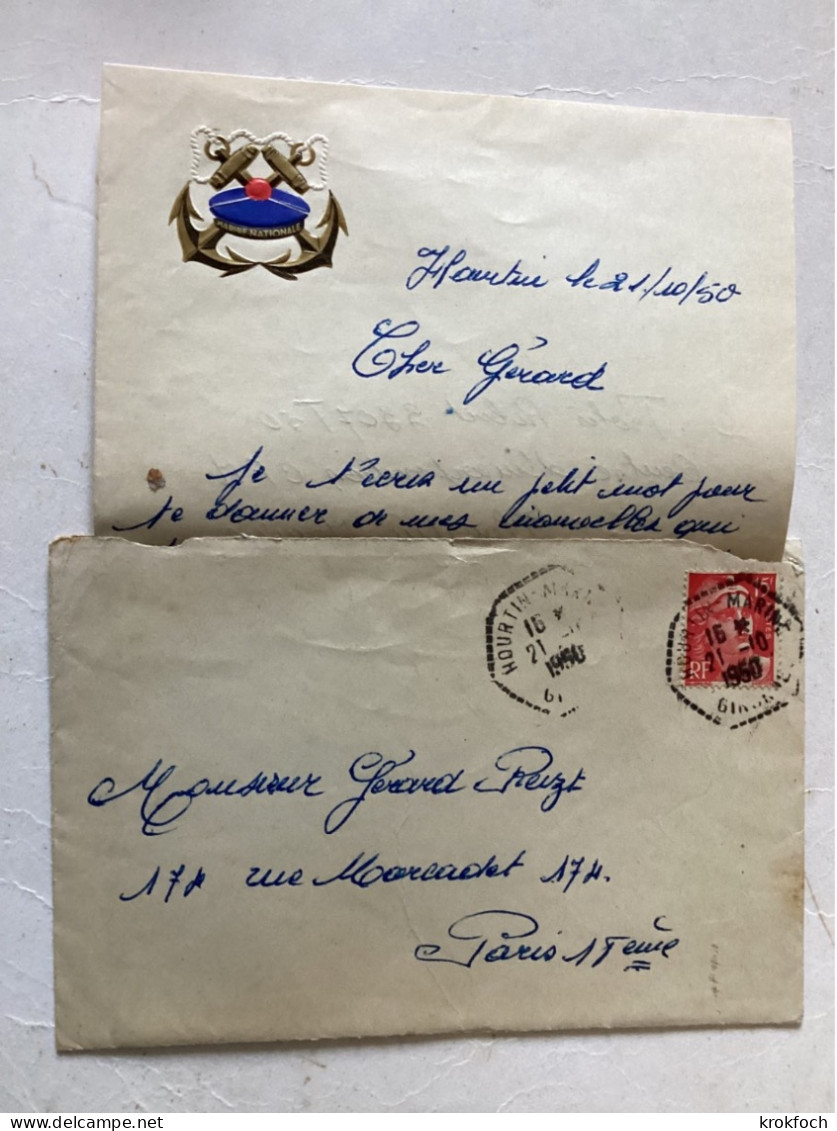 MARINE NATIONALE
Hourtin le 21/10/50
Cher Gérard
Je t'écris un petit mot pour
te donner de mes nouvelles qui
HOURTIN-MARINE
16 *
21 -10
1950
GIRONDE
5F
RF
HOURTIN-MARINE
16 *
21 -10
1950
GIRONDE
Monsieur Gérard
174 rue Marcadet 174.
Paris 17 ème
delcampe.net
krokfoch